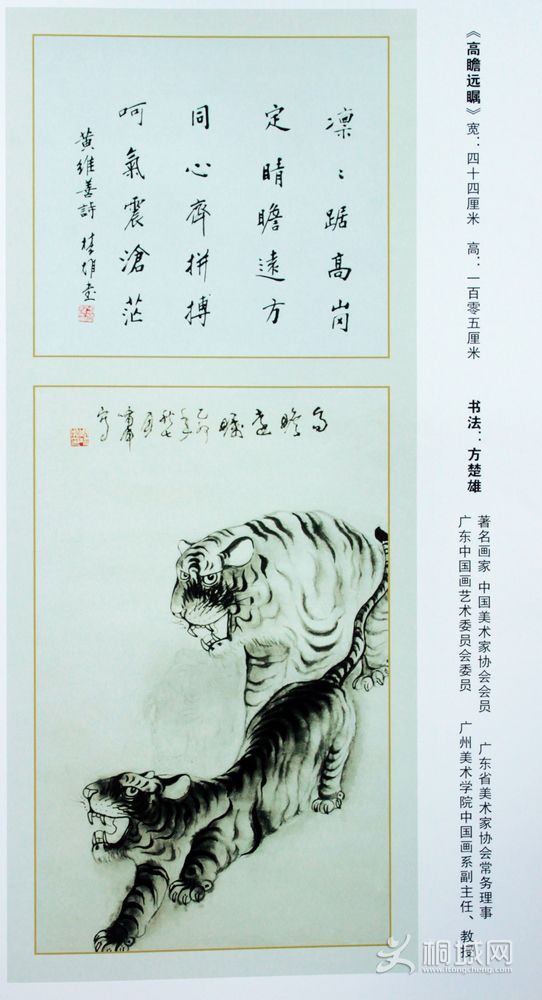 《高瞻远瞩》 宽：四十四厘米 高：一百零五厘米
书法：方楚雄
著名画家 中国美术家协会会员 广东省美术家协会常务理事
广东中国画艺术委员会委员 广州美术学院中国画系副主任、教授
凛〻踞高岗
定睛瞻遠方
同心齊拼搏
呵氣震滄茫
黄維善詩 楚雄書
高瞻遠矚
桐城网
www.itongcheng.com